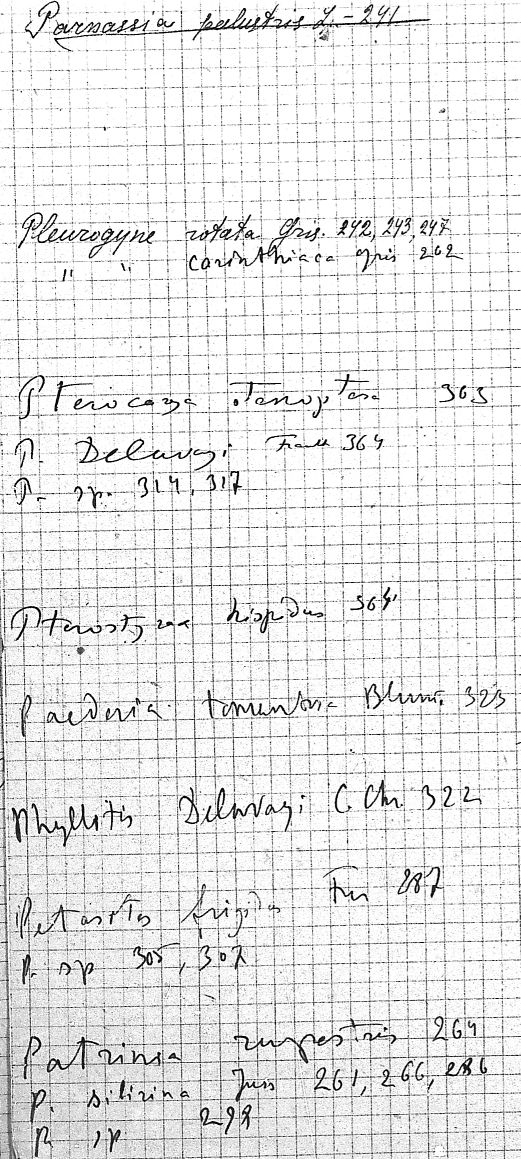 Parnassia palustris L. - 241
Pleurogyne rotata Gris. 242, 243, 247
" " carinthiaca gris 262
Pterocarya stenoptera 363
P. Delavayi Franch 364
P. sp. 314, 317
Pterostyrax hispidus 364
Paederia tomentosa Blum. 323
Phyllitis Delavayi C. Chr. 322
Petasites frigidus Fr 287
P. sp 305, 307
Patrinia rupestris 264
P. sibirina Juss 261, 266, 286
P. sp 298